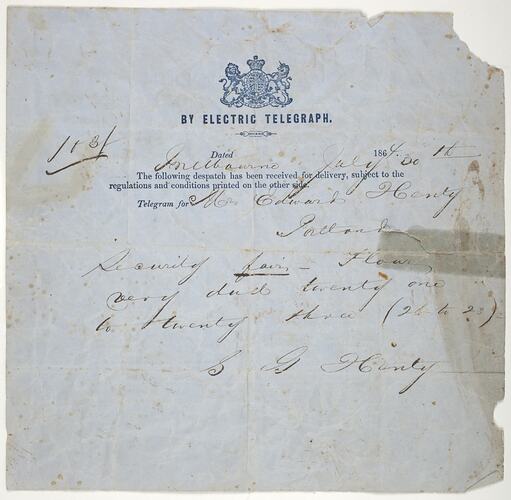 BY ELECTRIC TELEGRAPH.
113/
Dated Melbourne July 30th 1864
The following despatch has been received for delivery, subject to the
regulations and conditions printed on the other side.
Telegram for Mr Edward Henty
Portland
Security fair - Flour
very dull twenty one
to twenty three (21 to 23)
S G Henty